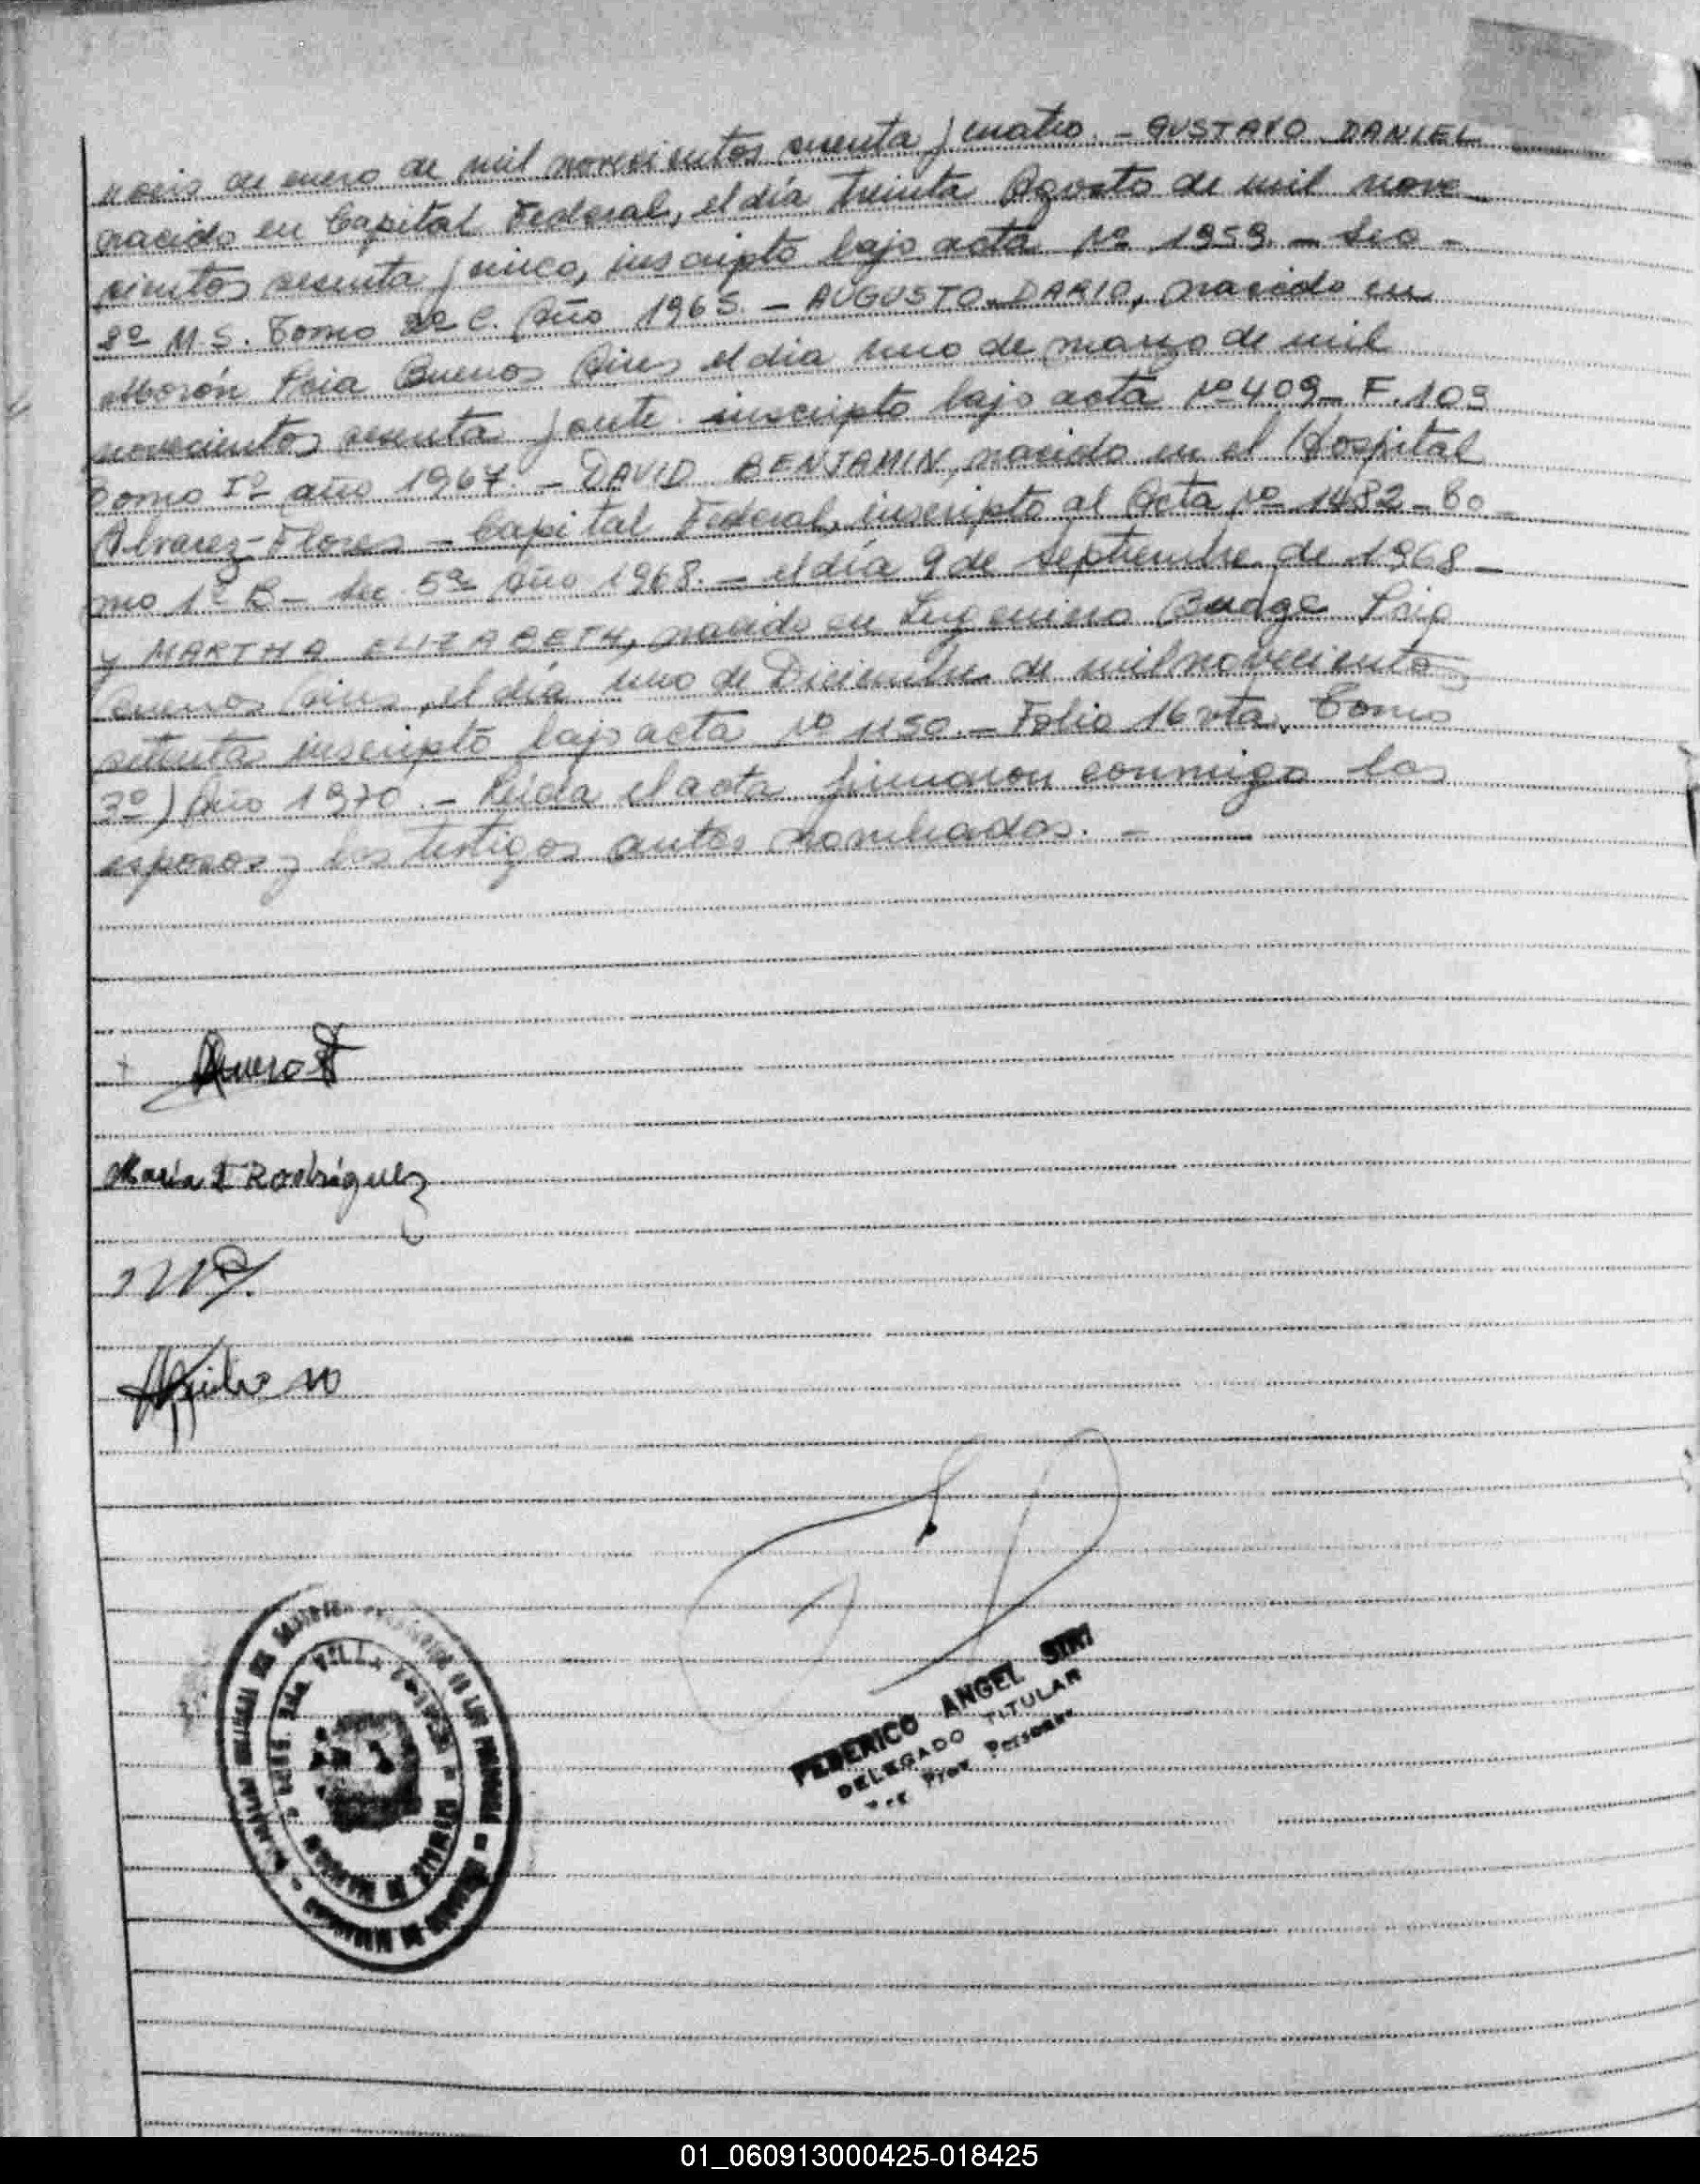 seis de enero de mil novecientos sesenta y cuatro. - GUSTAVO DANIEL
nacido en Capital Federal, el día treinta Agosto de mil nove
cientos sesenta y cinco, inscripto bajo acta Nº 1959 -
2º M.S. Tomo 2º C. Año 1965. - AUGUSTO DARIO, nacido en
Morón Pcia Buenos Aires el dia uno de marzo de mil
novecientos sesenta y siete inscripto bajo acta Nº 409 - F. 109
Tomo Iº año 1967. - DAVID BENJAMIN, nacido en el Hospital
Alvarez - Flores - Capital Federal, inscripto al Acta Nº 1482 - To
mo 1º B - Sec. 5ª Año 1968. - el día 9 de Septiembre de 1968 -
y MARTHA ELIZABETH, nacido en Ingeniero Budge Pcia
Buenos Aires, el día uno de Diciembre de mil novecientos
setenta inscripto bajo acta Nº 1150. - Folio 16 vta. Tomo
3º) Año 1970. - Leída el acta firmaron conmigo los
esposos y los testigos antes nombrados. -
María I Rodríguez
FEDERICO ANGEL SIRI
DELEGADO TITULAR
Personas
01_060913000425-018425